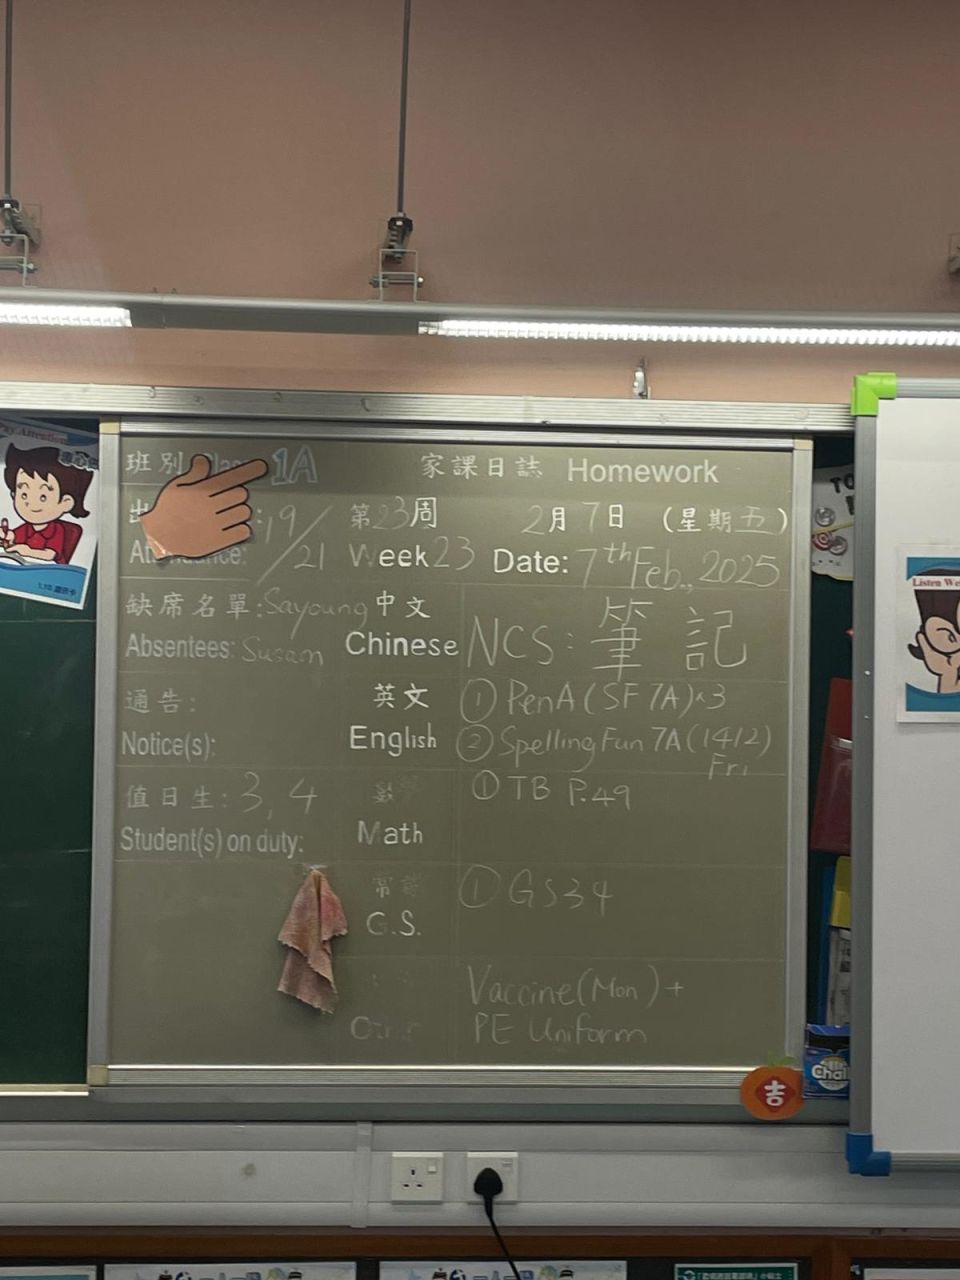 班別 Class: 1A
家課日誌 Homework
19/21
第23周
2月7日 (星期五)
Attendance:
Week 23
Date: 7th Feb., 2025
缺席名單: Sayoung
Absentees: Susam
中文
Chinese
NCS: 筆記
通告:
Notice(s):
英文
English
① PenA (SF 7A)x3
② Spelling Fun 7A (14/2)
Fri
值日生: 3, 4
Student(s) on duty:
數學
Math
① TB P.49
常識
G.S.
① GS34
Vaccine (Mon) +
PE Uniform
Pay Attention
Listen
吉
Chal